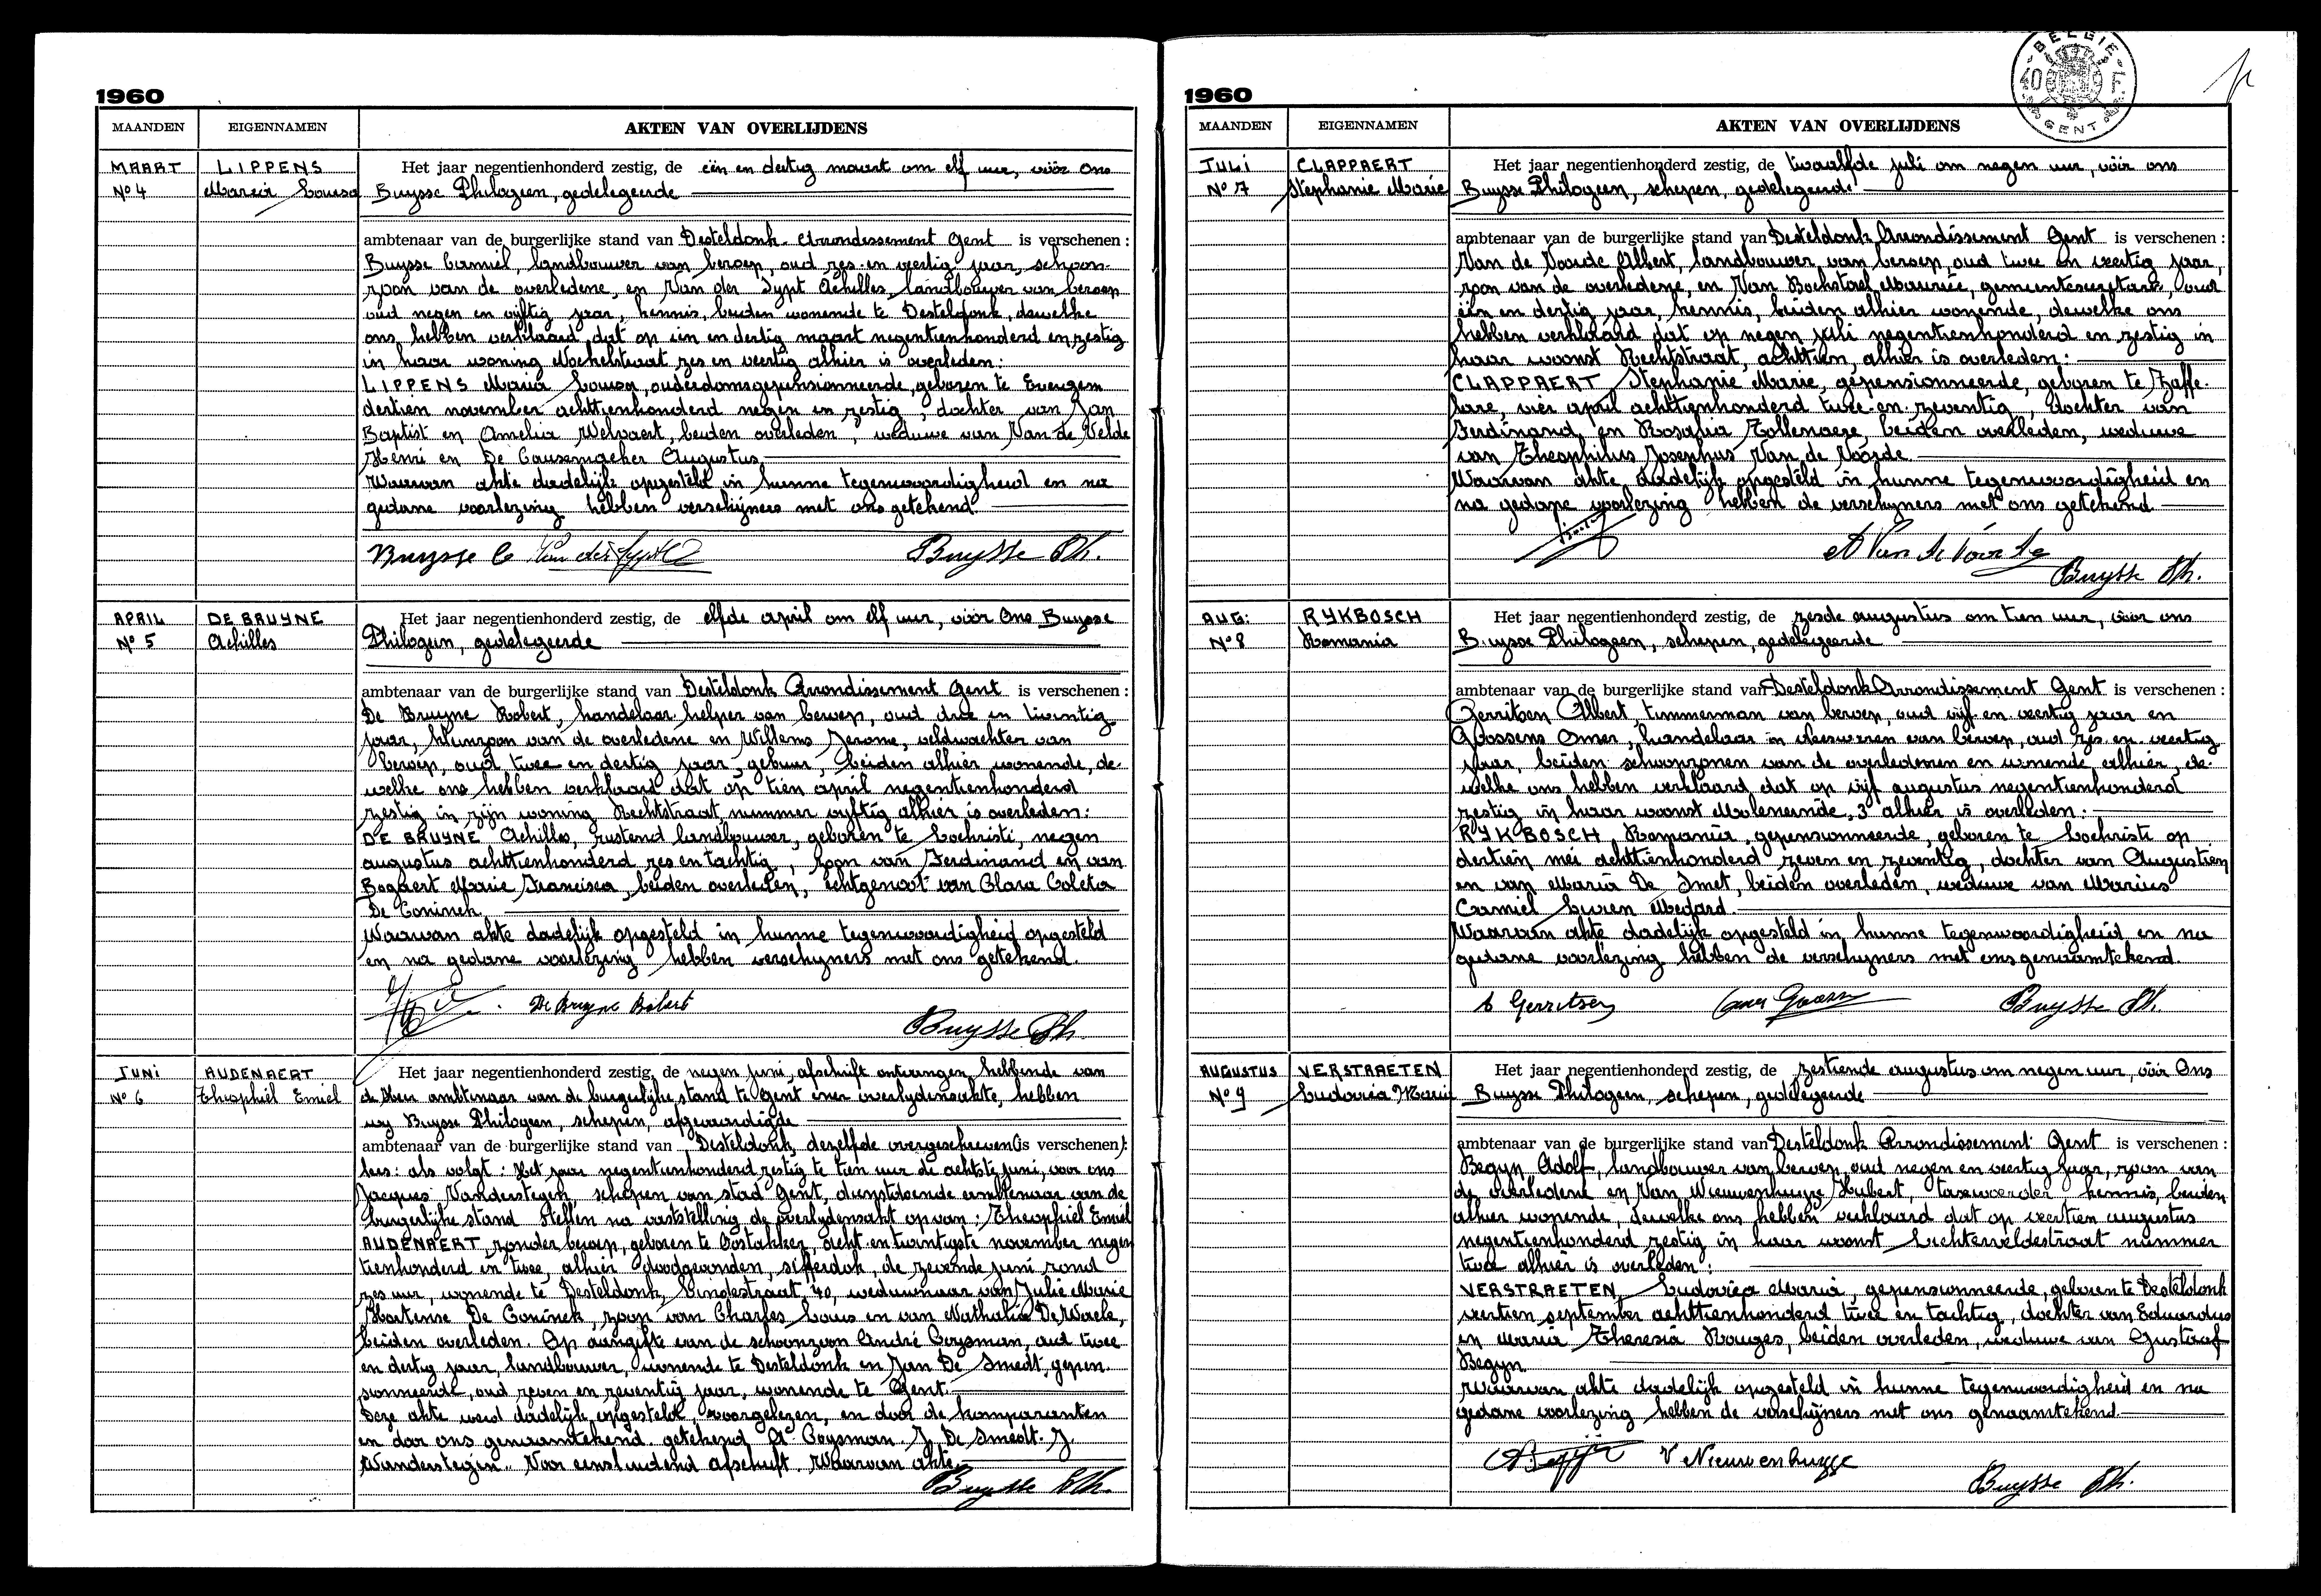 1960
MAANDEN EIGENNAMEN AKTEN VAN OVERLIJDENS
MAART LIPPENS Het jaar negentienhonderd zestig, de één en dertig maart om elf uur, vóór Ons
N° 4 Maria Louisa Buysse Philogeen, gedelegeerde
ambtenaar van de burgerlijke stand van Desteldonk Arrondissement Gent is verschenen :
Buysse Camiel, landbouwer van beroep, oud zes en veertig jaar, schoon-
zoon van de overledene, en Van der Sypt Achilles, landbouwer van beroep
oud negen en vijftig jaar, kennis, beiden wonende te Desteldonk, dewelke
ons hebben verklaard dat op één en dertig maart negentienhonderd en zestig
in haar woning zes en veertig alhier is overleden:
LIPPENS Maria Louisa, ouderdomsgepensionneerde, geboren te Evergem
dertien november achttienhonderd negen en zestig, dochter van Jan
Baptist en Amelia Welvaert, beiden overleden, weduwe van Van de Velde
Henri en De Causemaeker Augustus
Waarvan akte dadelijk opgesteld in hunne tegenwoordigheid en na
gedane voorlezing hebben verschijners met ons getekend.
Buysse C Van der Sypt Buysse Ph.
APRIL DE BRUYNE Het jaar negentienhonderd zestig, de elfde april om elf uur, vóór Ons Buysse
N° 5 Achilles Philogeen, gedelegeerde
ambtenaar van de burgerlijke stand van Desteldonk Arrondissement Gent is verschenen :
De Bruyne Robert, handelaar helper van beroep, oud drie en twintig
jaar, kleinzoon van de overledene en Willems Jerome, veldwachter van
beroep, oud twee en dertig jaar, gebuur, beiden alhier wonende, de-
welke ons hebben verklaard dat op tien april negentienhonderd
zestig in zijn woning Rechtstraat, nummer vijftig alhier is overleden:
DE BRUYNE Achilles, rustend landbouwer, geboren te Lochristi, negen
augustus achttienhonderd zes en tachtig, zoon van Ferdinand en van
Bogaert Marie Francisca, beiden overleden, echtgenoot van Clara Coleta
De Coninck.
Waarvan akte dadelijk opgesteld in hunne tegenwoordigheid opgesteld
en na gedane voorlezing hebben verschijners met ons getekend.
De Bruyne Robert
Buysse Ph.
JUNI AUDENAERT Het jaar negentienhonderd zestig, de negen juni, afschrift ontvangen hebbende van
N° 6 Theophiel Emiel de Heer ambtenaar van de burgerlijke stand te Gent ener overlijdensakte, hebben
wij Buysse Philogeen, schepen, afgevaardigde
ambtenaar van de burgerlijke stand van Desteldonk, dezelfde overgeschreven (is verschenen):
lees: als volgt: Het jaar negentienhonderd zestig te tien uur de achtste juni, voor ons
Jacques Vanderstegen, schepen van stad Gent, dienstdoende ambtenaar van de
burgerlijke stand Stellen na vaststelling de overlijdensakt op van: Theophiel Emiel
AUDENAERT, zonder beroep, geboren te Oostakker, acht en twintigste november negen
tienhonderd en twee, alhier doodgevonden, sifferdok, de zevende juni rond
zes uur, wonende te Desteldonk, Lindestraat, 40, weduwnaar van Julie Marie
Hortense De Coninck, zoon van Charles Louis en van Nathalie De Waele,
beiden overleden. Op aangifte van de schoonzoon André Coysman, oud twee
en dertig jaar, landbouwer, wonende te Desteldonk en Jan De Smedt, gepen-
sionneerde, oud zeven en zeventig jaar, wonende te Gent.
Deze akte werd dadelijk opgesteld, voorgelezen, en door de komparanten
en door ons genaamtekend. getekend A Coysman. J. De Smedt. J.
Vanderstegen. Voor eensluidend afschrift. Waarvan akte.
Buysse Ph.
1960
BELGIE
40 F
GENT
MAANDEN EIGENNAMEN AKTEN VAN OVERLIJDENS
JULI CLAPPAERT Het jaar negentienhonderd zestig, de twaalfde juli om negen uur, vóór ons
N° 7 Stephanie Marie Buysse Philogeen, schepen, gedelegeerde
ambtenaar van de burgerlijke stand van Desteldonk Arrondissement Gent is verschenen :
Van de Voorde Albert, landbouwer van beroep, oud twee en veertig jaar,
zoon van de overledene, en Van Bockstael Maurice, gemeentesecretaris, oud
één en dertig jaar, kennis, beiden alhier wonende, dewelke ons
hebben verklaard dat op negen juli negentienhonderd en zestig in
haar woonst Rechtstraat, achttien, alhier is overleden:
CLAPPAERT Stephanie Marie, gepensionneerde, geboren te Zaffe-
lare, vier april achttienhonderd twee en zeventig, dochter van
Ferdinand en Rosalia Tollenaere, beiden overleden, weduwe
van Theophilus Josephus Van de Voorde
Waarvan akte dadelijk opgesteld in hunne tegenwoordigheid en
na gedane voorlezing hebben de verschijners met ons getekend
A Van de Voorde
Buysse Ph.
AUG: RYKBOSCH Het jaar negentienhonderd zestig, de zesde augustus om tien uur, vóór ons
N° 8 Romania Buysse Philogeen, schepen, gedelegeerde
ambtenaar van de burgerlijke stand van Desteldonk Arrondissement Gent is verschenen :
Gerritsen Albert, timmerman van beroep, oud vijf en veertig jaar en
Goossens Omer, handelaar in vleeswaren van beroep, oud zes en veertig
jaar, beiden schoonzonen van de overledenen en wonende alhier, de-
welke ons hebben verklaard dat op vijf augustus negentienhonderd
zestig in haar woonst Moleneinde, 3 alhier is overleden:
RYKBOSCH Romania, gepensionneerde, geboren te Lochristi op
dertien mei achttienhonderd zeven en zeventig, dochter van Augustien
en van Maria De Smet, beiden overleden, weduwe van Marius
Camiel Medard.
Waarvan akte dadelijk opgesteld in hunne tegenwoordigheid en na
gedane voorlezing hebben de verschijners met ons genaamtekend.
A Gerritsen Omer Goossens Buysse Ph.
AUGUSTUS VERSTRAETEN Het jaar negentienhonderd zestig, de zestiende augustus om negen uur, vóór Ons
N° 9 Ludovica Maria Buysse Philogeen, schepen, gedelegeerde
ambtenaar van de burgerlijke stand van Desteldonk Arrondissement Gent is verschenen :
Begyn Adolf, landbouwer van beroep, oud negen en veertig jaar, zoon van
de overledene en Van Nieuwenhuyze Hubert, taxvoerder kennis, beiden
alhier wonende, dewelke ons hebben verklaard dat op veertien augustus
negentienhonderd zestig in haar woonst Lichterveldestraat nummer
twee alhier is overleden:
VERSTRAETEN, Ludovica Maria, gepensionneerde, geboren te Desteldonk
veertien september achttienhonderd twee en tachtig, dochter van Eduardus
en Maria Theresia Rouges, beiden overleden, weduwe van Gustaaf
Begyn
Waarvan akte dadelijk opgesteld in hunne tegenwoordigheid en na
gedane voorlezing hebben de verschijners met ons genaamtekend.
A. Begyn V Nieuwenhuyze
Buysse Ph.